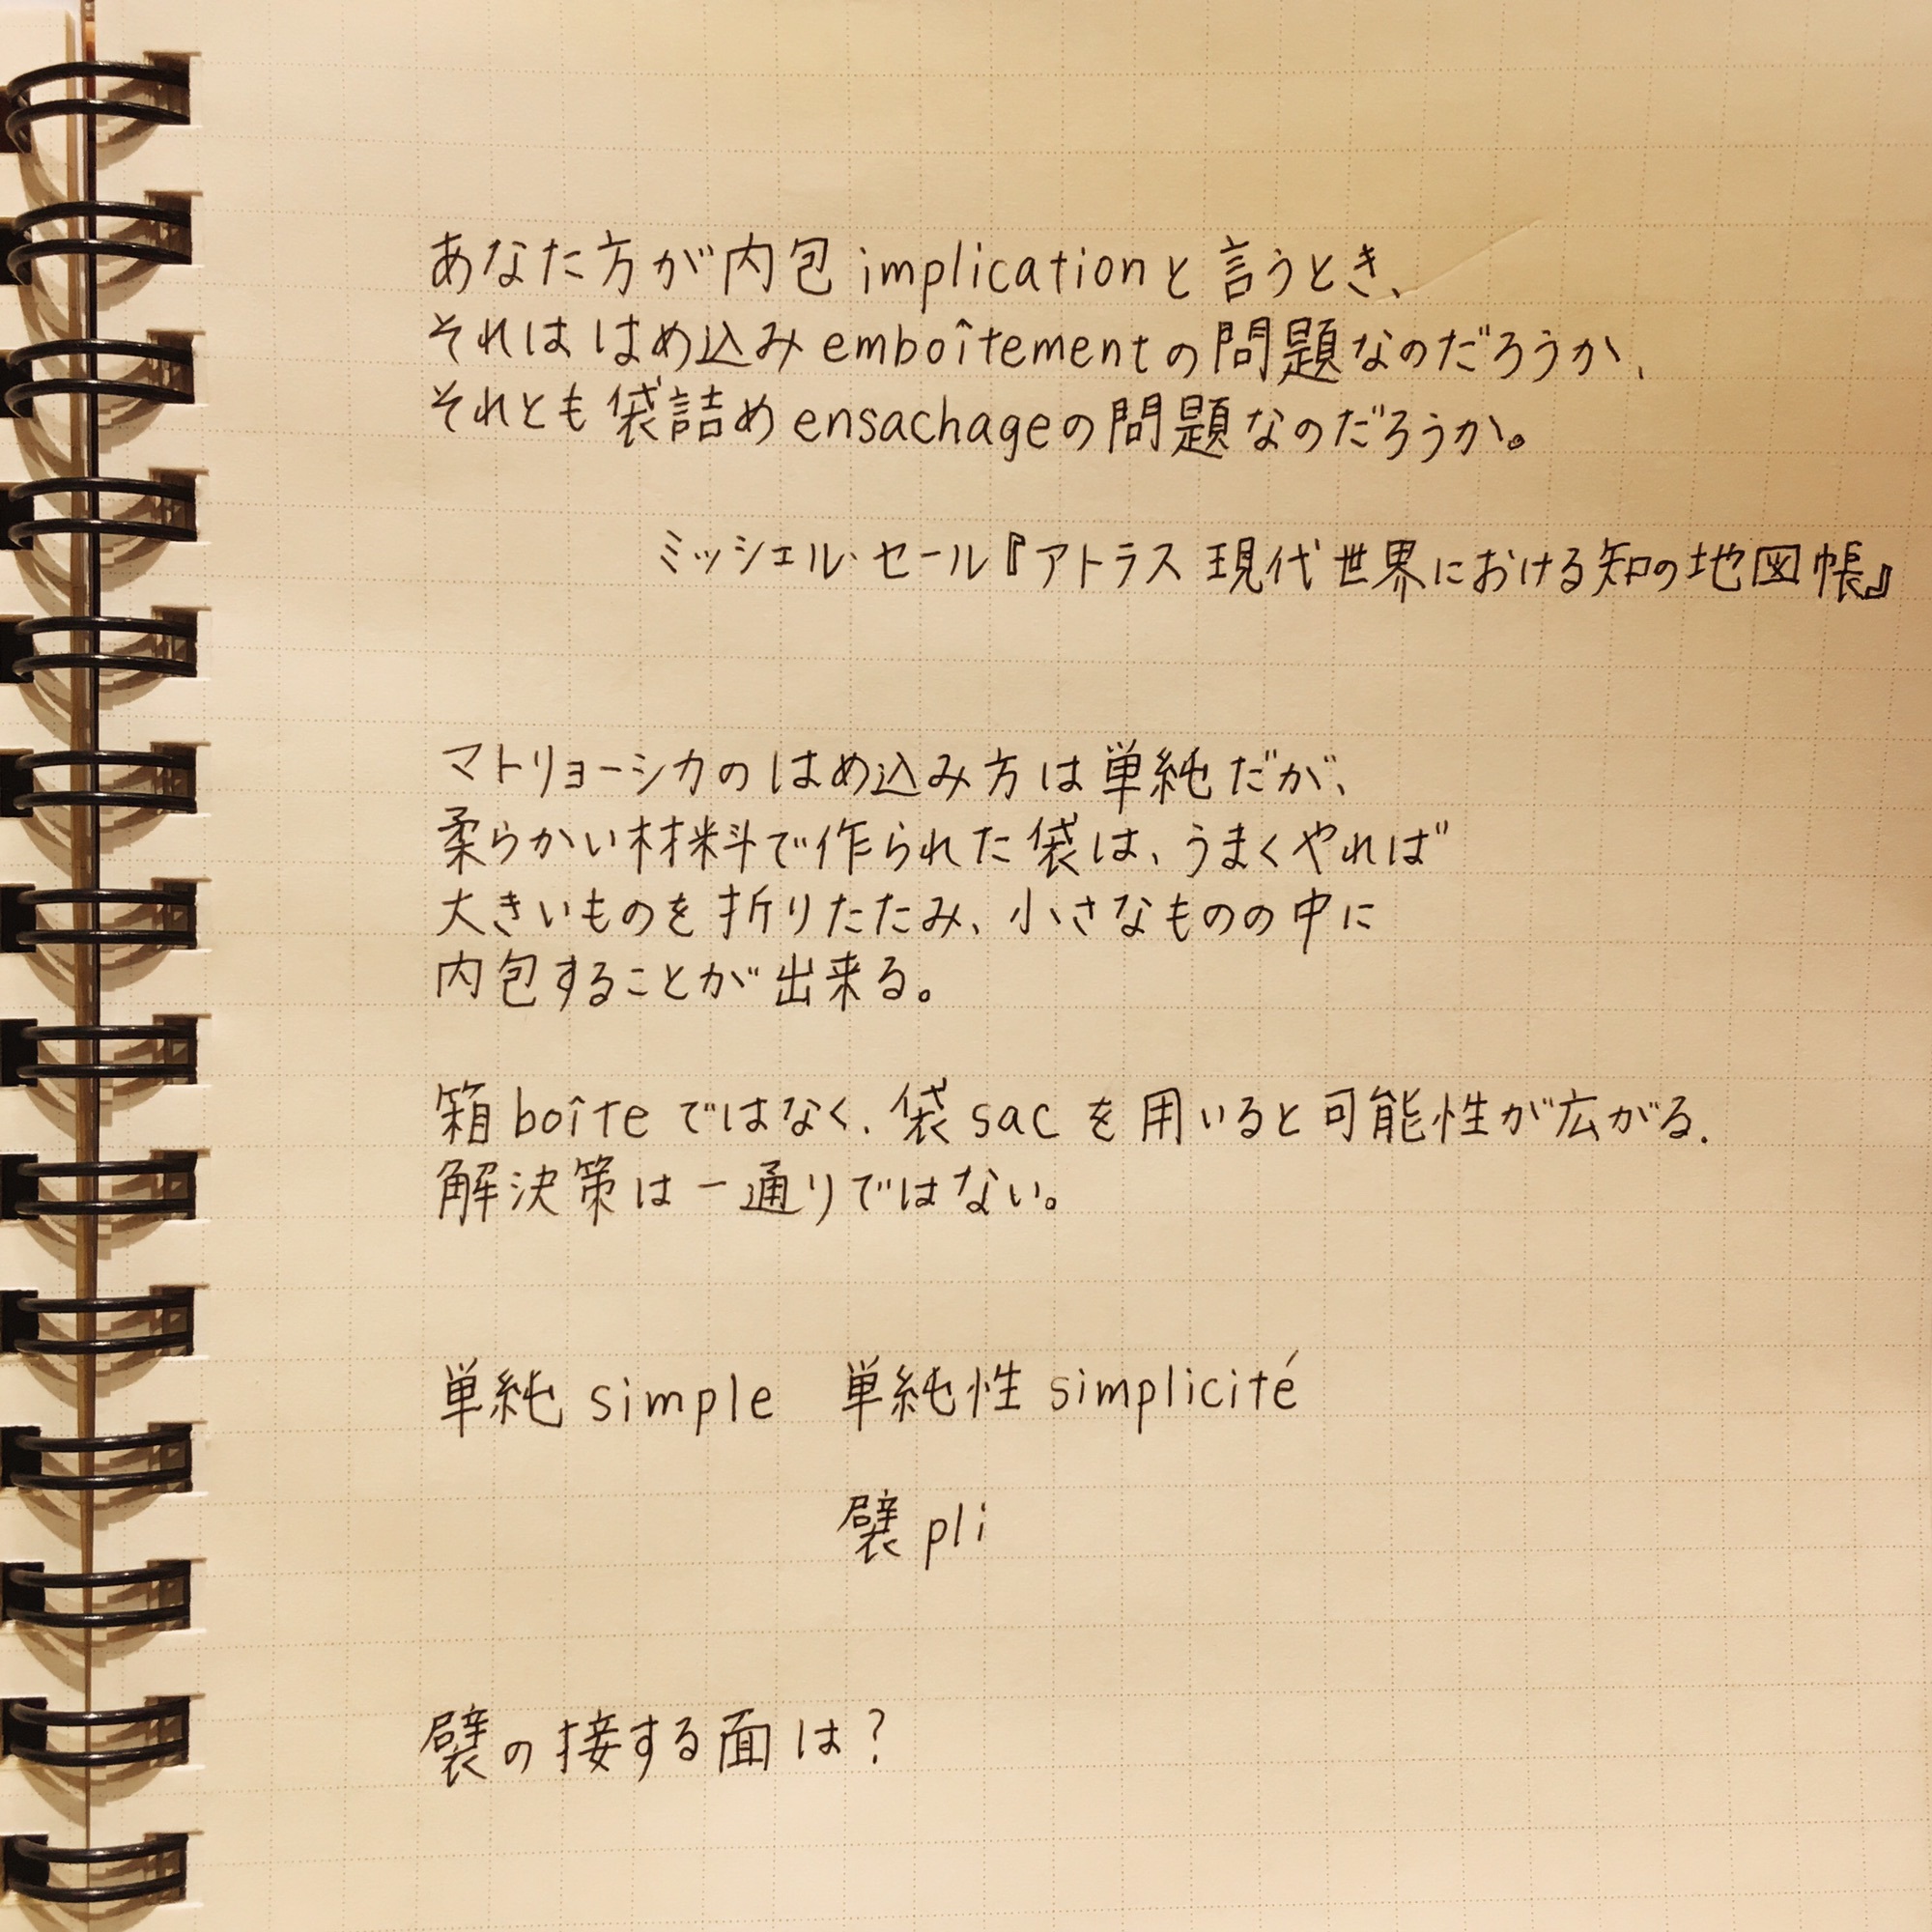 あなた方が内包 implicationと言うとき、
それははめ込み emboîtementの問題なのだろうか、
それとも袋詰め ensachageの問題なのだろうか。
ミッシェル・セール『アトラス 現代世界における知の地図帳』
マトリョーシカのはめ込み方は単純だが、
柔らかい材料で作られた袋は、うまくやれば
大きいものを折りたたみ、小さなものの中に
内包することが出来る。
箱 boîte ではなく、袋 sac を用いると可能性が広がる.
解決策は一通りではない。
単純 simple 単純性 simplicité
襞 pli
襞の接する面は?